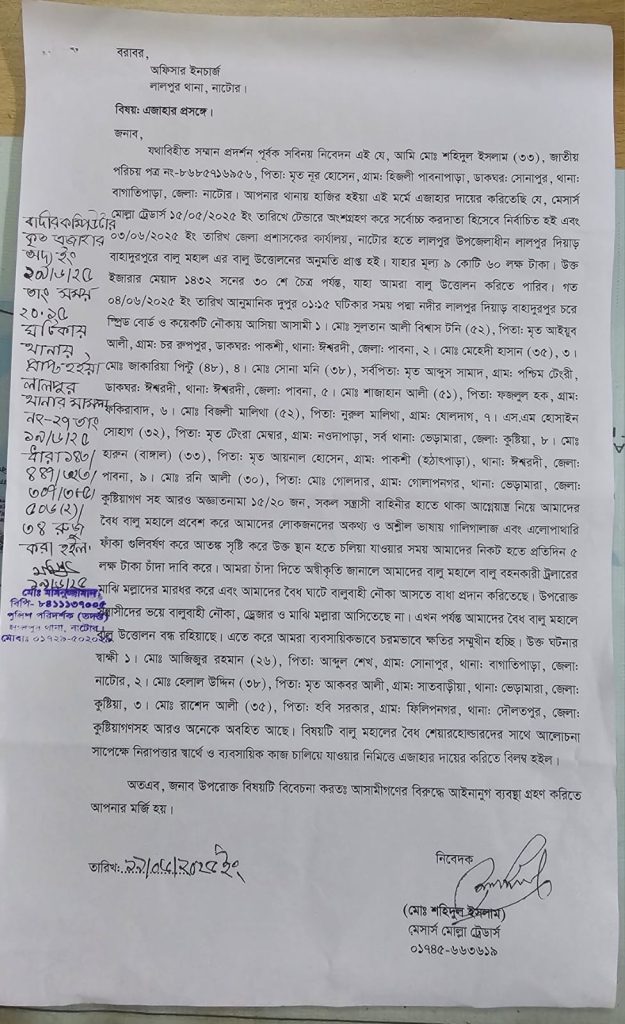 বরাবর,
অফিসার ইনচার্জ
লালপুর থানা, নাটোর।
বিষয়: এজাহার প্রসঙ্গে।
জনাব,
যথাবিহীত সম্মান প্রদর্শন পূর্বক সবিনয় নিবেদন এই যে, আমি মোঃ শহিদুল ইসলাম (৩৩), জাতীয়
পরিচয় পত্র নং-৮৬৮৫৭১৬৯৫৬, পিতা: মৃত নূর হোসেন, গ্রাম: হিজলী পাবনাপাড়া, ডাকঘর: সোনাপুর, থানা:
বাগাতিপাড়া, জেলা: নাটোর। আপনার থানায় হাজির হইয়া এই মর্মে এজাহার দায়ের করিতেছি যে, মেসার্স
মোল্লা ট্রেডার্স ১৫/০৫/২০২৫ ইং তারিখে টেন্ডারে অংশগ্রহণ করে সর্বোচ্চ করদাতা হিসেবে নির্বাচিত হই এবং
০৩/০৬/২০২৫ ইং তারিখ জেলা প্রশাসকের কার্যালয়, নাটোর হতে লালপুর উপজেলাধীন লালপুর দিয়াড়
বাহাদুরপুরে বালু মহাল এর বালু উত্তোলনের অনুমতি প্রাপ্ত হই। যাহার মূল্য ৯ কোটি ৬০ লক্ষ টাকা। উক্ত
ইজারার মেয়াদ ১৪৩২ সনের ৩০ শে চৈত্র পর্যন্ত, যাহা আমরা বালু উত্তোলন করিতে পারিব। গত
০৪/০৬/২০২৫ ইং তারিখ আনুমানিক দুপুর ০১:১৫ ঘটিকার সময় পদ্মা নদীর লালপুর দিয়াড় বাহাদুরপুর চরে
স্প্রিড বোর্ড ও কয়েকটি নৌকায় আসিয়া আসামী ১। মোঃ সুলতান আলী বিশ্বাস টনি (৫২), পিতা: মৃত আইয়ুব
আলী, গ্রাম: চর রুপপুর, ডাকঘর: পাকশী, থানা: ঈশ্বরদী, জেলা: পাবনা, ২। মোঃ মেহেদী হাসান (৩৫), ৩।
মোঃ জাকারিয়া পিন্টু (৪৮), ৪। মোঃ সোনা মনি (৩৮), সর্বপিতা: মৃত আব্দুস সামাদ, গ্রাম: পশ্চিম টেংরী,
ডাকঘর: ঈশ্বরদী, থানা: ঈশ্বরদী, জেলা: পাবনা, ৫। মোঃ শাজাহান আলী (৫১), পিতা: ফজলুল হক, গ্রাম:
ফকিরাবাদ, ৬। মোঃ বিজলী মালিথা (৫২), পিতা: নুরুল মালিথা, গ্রাম: ষোলদাগ, ৭। এস.এম হোসাইন
সোহাগ (৩২), পিতা: মৃত টেংরা মেম্বার, গ্রাম: নওদাপাড়া, সর্ব থানা: ভেড়ামারা, জেলা: কুষ্টিয়া, ৮। মোঃ
হারুন (বাঙ্গাল) (৩৩), পিতা: মৃত আয়নাল হোসেন, গ্রাম: পাকশী (হঠাৎপাড়া), থানা: ঈশ্বরদী, জেলা:
পাবনা, ৯। মোঃ রনি আলী (৩০), পিতা: মোঃ গোলদার, গ্রাম: গোলাপনগর, থানা: ভেড়ামারা, জেলা:
কুষ্টিয়াগণ সহ আরও অজ্ঞাতনামা ১৫/২০ জন, সকল সন্ত্রাসী বাহিনীর হাতে থাকা আগ্নেয়াস্ত্র নিয়ে আমাদের
বৈধ বালু মহালে প্রবেশ করে আমাদের লোকজনদের অকথ্য ও অশ্লীল ভাষায় গালিগালাজ এবং এলোপাথারি
ফাঁকা গুলিবর্ষণ করে আতঙ্ক সৃষ্টি করে উক্ত স্থান হতে চলিয়া যাওয়ার সময় আমাদের নিকট হতে প্রতিদিন ৫
লক্ষ টাকা চাঁদা দাবি করে। আমরা চাঁদা দিতে অস্বীকৃতি জানালে আমাদের বালু মহালে বালু বহনকারী ট্রলারের
মাঝি মল্লাদের মারধর করে এবং আমাদের বৈধ ঘাটে বালুবাহী নৌকা আসতে বাধা প্রদান করিতেছে। উপরোক্ত
সন্ত্রাসীদের ভয়ে বালুবাহী নৌকা, ড্রেজার ও মাঝি মল্লারা আসিতেছে না। এখন পর্যন্ত আমাদের বৈধ বালু মহালে
বালু উত্তোলন বন্ধ রহিয়াছে। এতে করে আমরা ব্যবসায়িকভাবে চরমভাবে ক্ষতির সম্মুখীন হচ্ছি। উক্ত ঘটনার
স্বাক্ষী ১। মোঃ আজিজুর রহমান (২৬), পিতা: আব্দুল শেখ, গ্রাম: সোনাপুর, থানা: বাগাতিপাড়া, জেলা:
নাটোর, ২। মোঃ হেলাল উদ্দিন (৩৮), পিতা: মৃত আকবর আলী, গ্রাম: সাতবাড়ীয়া, থানা: ভেড়ামারা, জেলা:
কুষ্টিয়া, ৩। মোঃ রাশেদ আলী (৩৫), পিতা: হবি সরকার, গ্রাম: ফিলিপনগর, থানা: দৌলতপুর, জেলা:
কুষ্টিয়াগণসহ আরও অনেকে অবহিত আছে। বিষয়টি বালু মহালের বৈধ শেয়ারহোল্ডারদের সাথে আলোচনা
সাপেক্ষে নিরাপত্তার স্বার্থে ও ব্যবসায়িক কাজ চালিয়ে যাওয়ার নিমিত্তে এজাহার দায়ের করিতে বিলম্ব হইল।
অতএব, জনাব উপরোক্ত বিষয়টি বিবেচনা করতঃ আসামীগণের বিরুদ্ধে আইনানুগ ব্যবস্থা গ্রহণ করিতে
আপনার মর্জি হয়।
বাদীর কম্পিউটার
কৃত এজাহার
অদ্য ইং
১৯/৬/২৫
তাং সময়
২০:১৫
ঘটিকায়
থানায়
প্রাপ্ত হইয়া
লালপুর
থানার মামলা
নং-২৭ তাং
১৯/৬/২৫
ধারা ১৪৩/
৫০৬(২)/
৩৪ রুজু
করা হইল।
১৯/৬/২৫
বিপি- ৮৪১১১৩৭০০৫
পুলিশ পরিদর্শক (তদন্ত)
লালপুর থানা, নাটোর।
তারিখ: ১৯/০৬/২০২৫ ইং
নিবেদক
(মোঃ শহিদুল ইসলাম)
মেসার্স মোল্লা ট্রেডার্স
০১৭৪৫-৬৬৩৬১৯